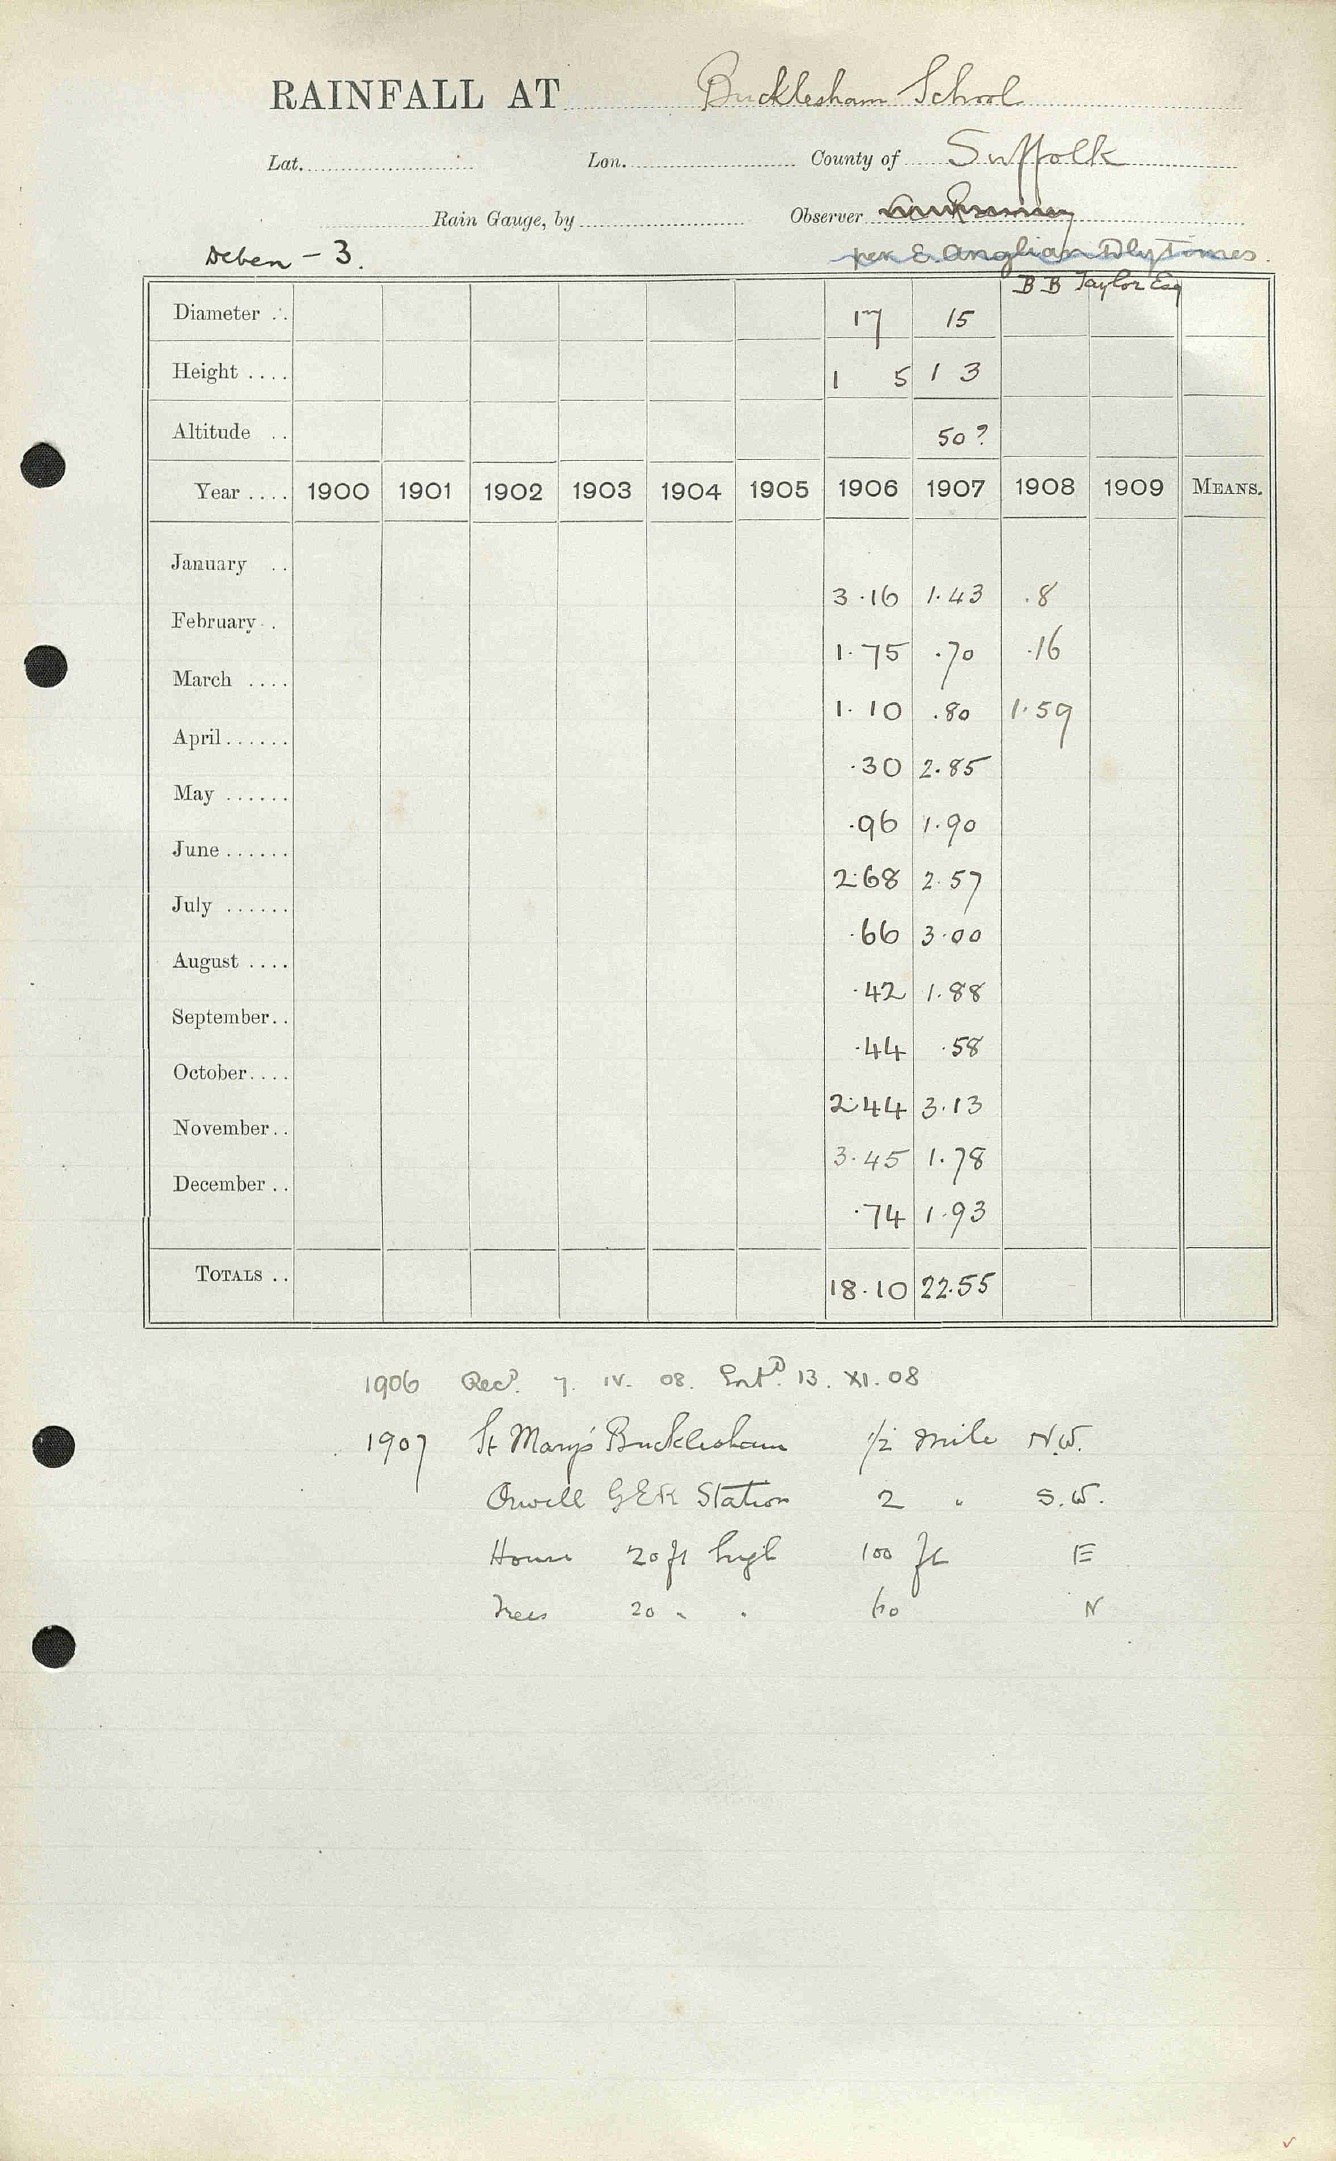 RAINFALL AT Bucklesham School
Lat. Lon. County of Suffolk
Rain Gauge, by Observer
Deben - 3. per E. Anglian Dly Times.
B B Taylor Esq
Diameter .. 17 15
Height .... 1 5 1 3
Altitude .. 50?
Year .... 1900 1901 1902 1903 1904 1905 1906 1907 1908 1909 MEANS.
January .. 3.16 1.43 .8
February .. 1.75 .70 .16
March .... 1.10 .80 1.59
April ...... .30 2.85
May ...... .96 1.90
June ...... 2.68 2.57
July ...... .66 3.00
August .... .42 1.88
September .. .44 .58
October .... 2.44 3.13
November .. 3.45 1.78
December .. .74 1.93
TOTALS .. 18.10 22.55
1906 Recd. 7. IV. 08. Entd. 13. XI. 08
1907 St Mary's Bucklesham 1/2 mile N.W.
Orwell GER Station 2 " S.W.
House 20 ft high 100 ft E
Trees 20 " " 60 N